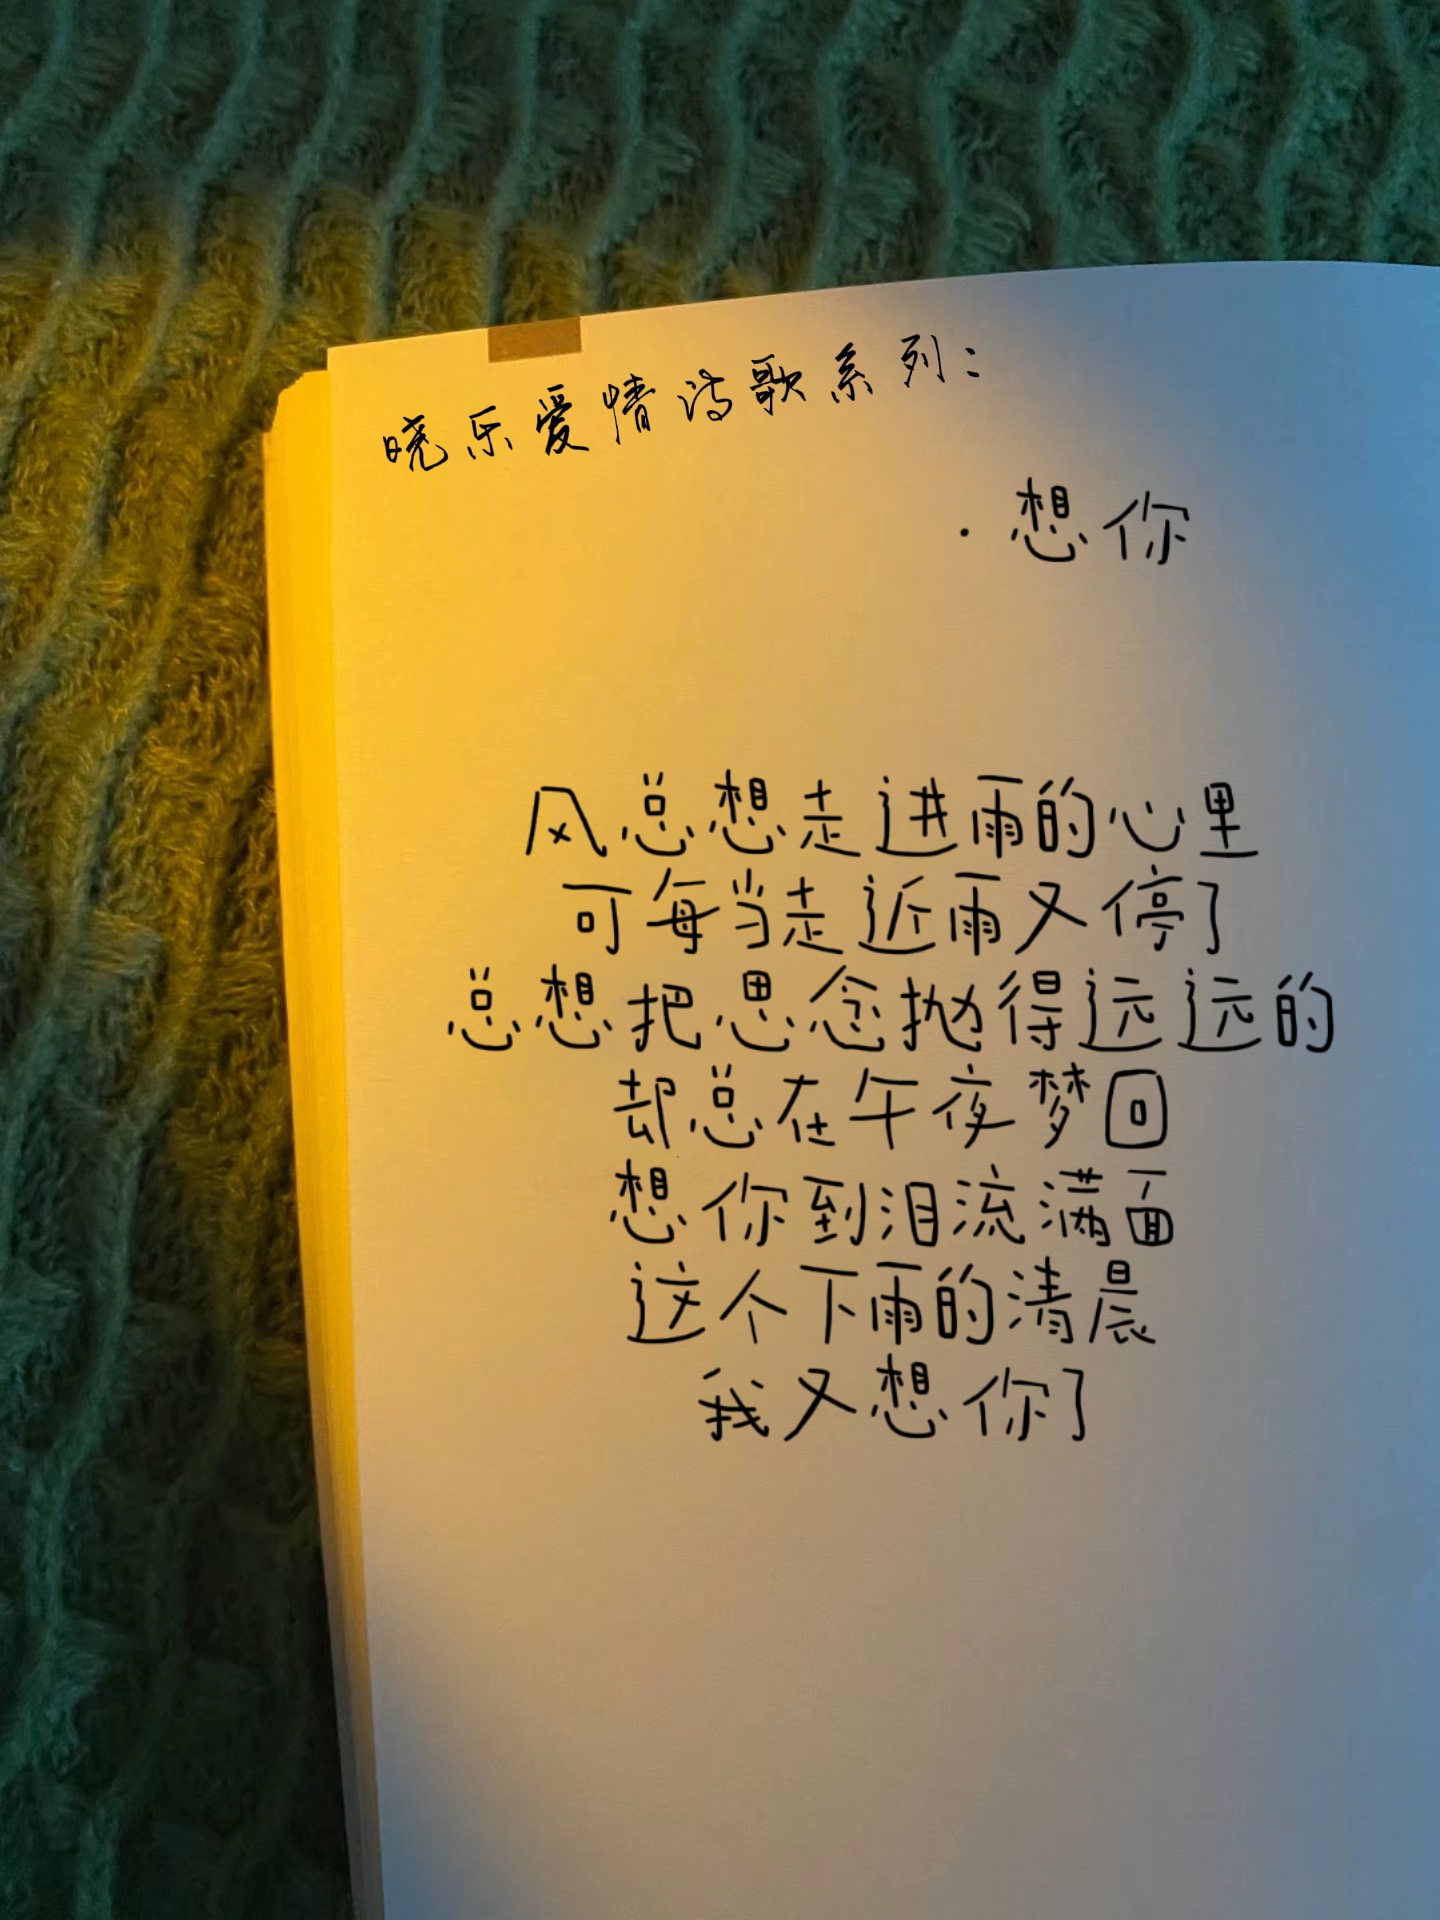 晓乐爱情诗歌系列：
·想你
风总想走进雨的心里
可每当走近雨又停了
总想把思念抛得远远的
却总在午夜梦回
想你到泪流满面
这个下雨的清晨
我又想你了